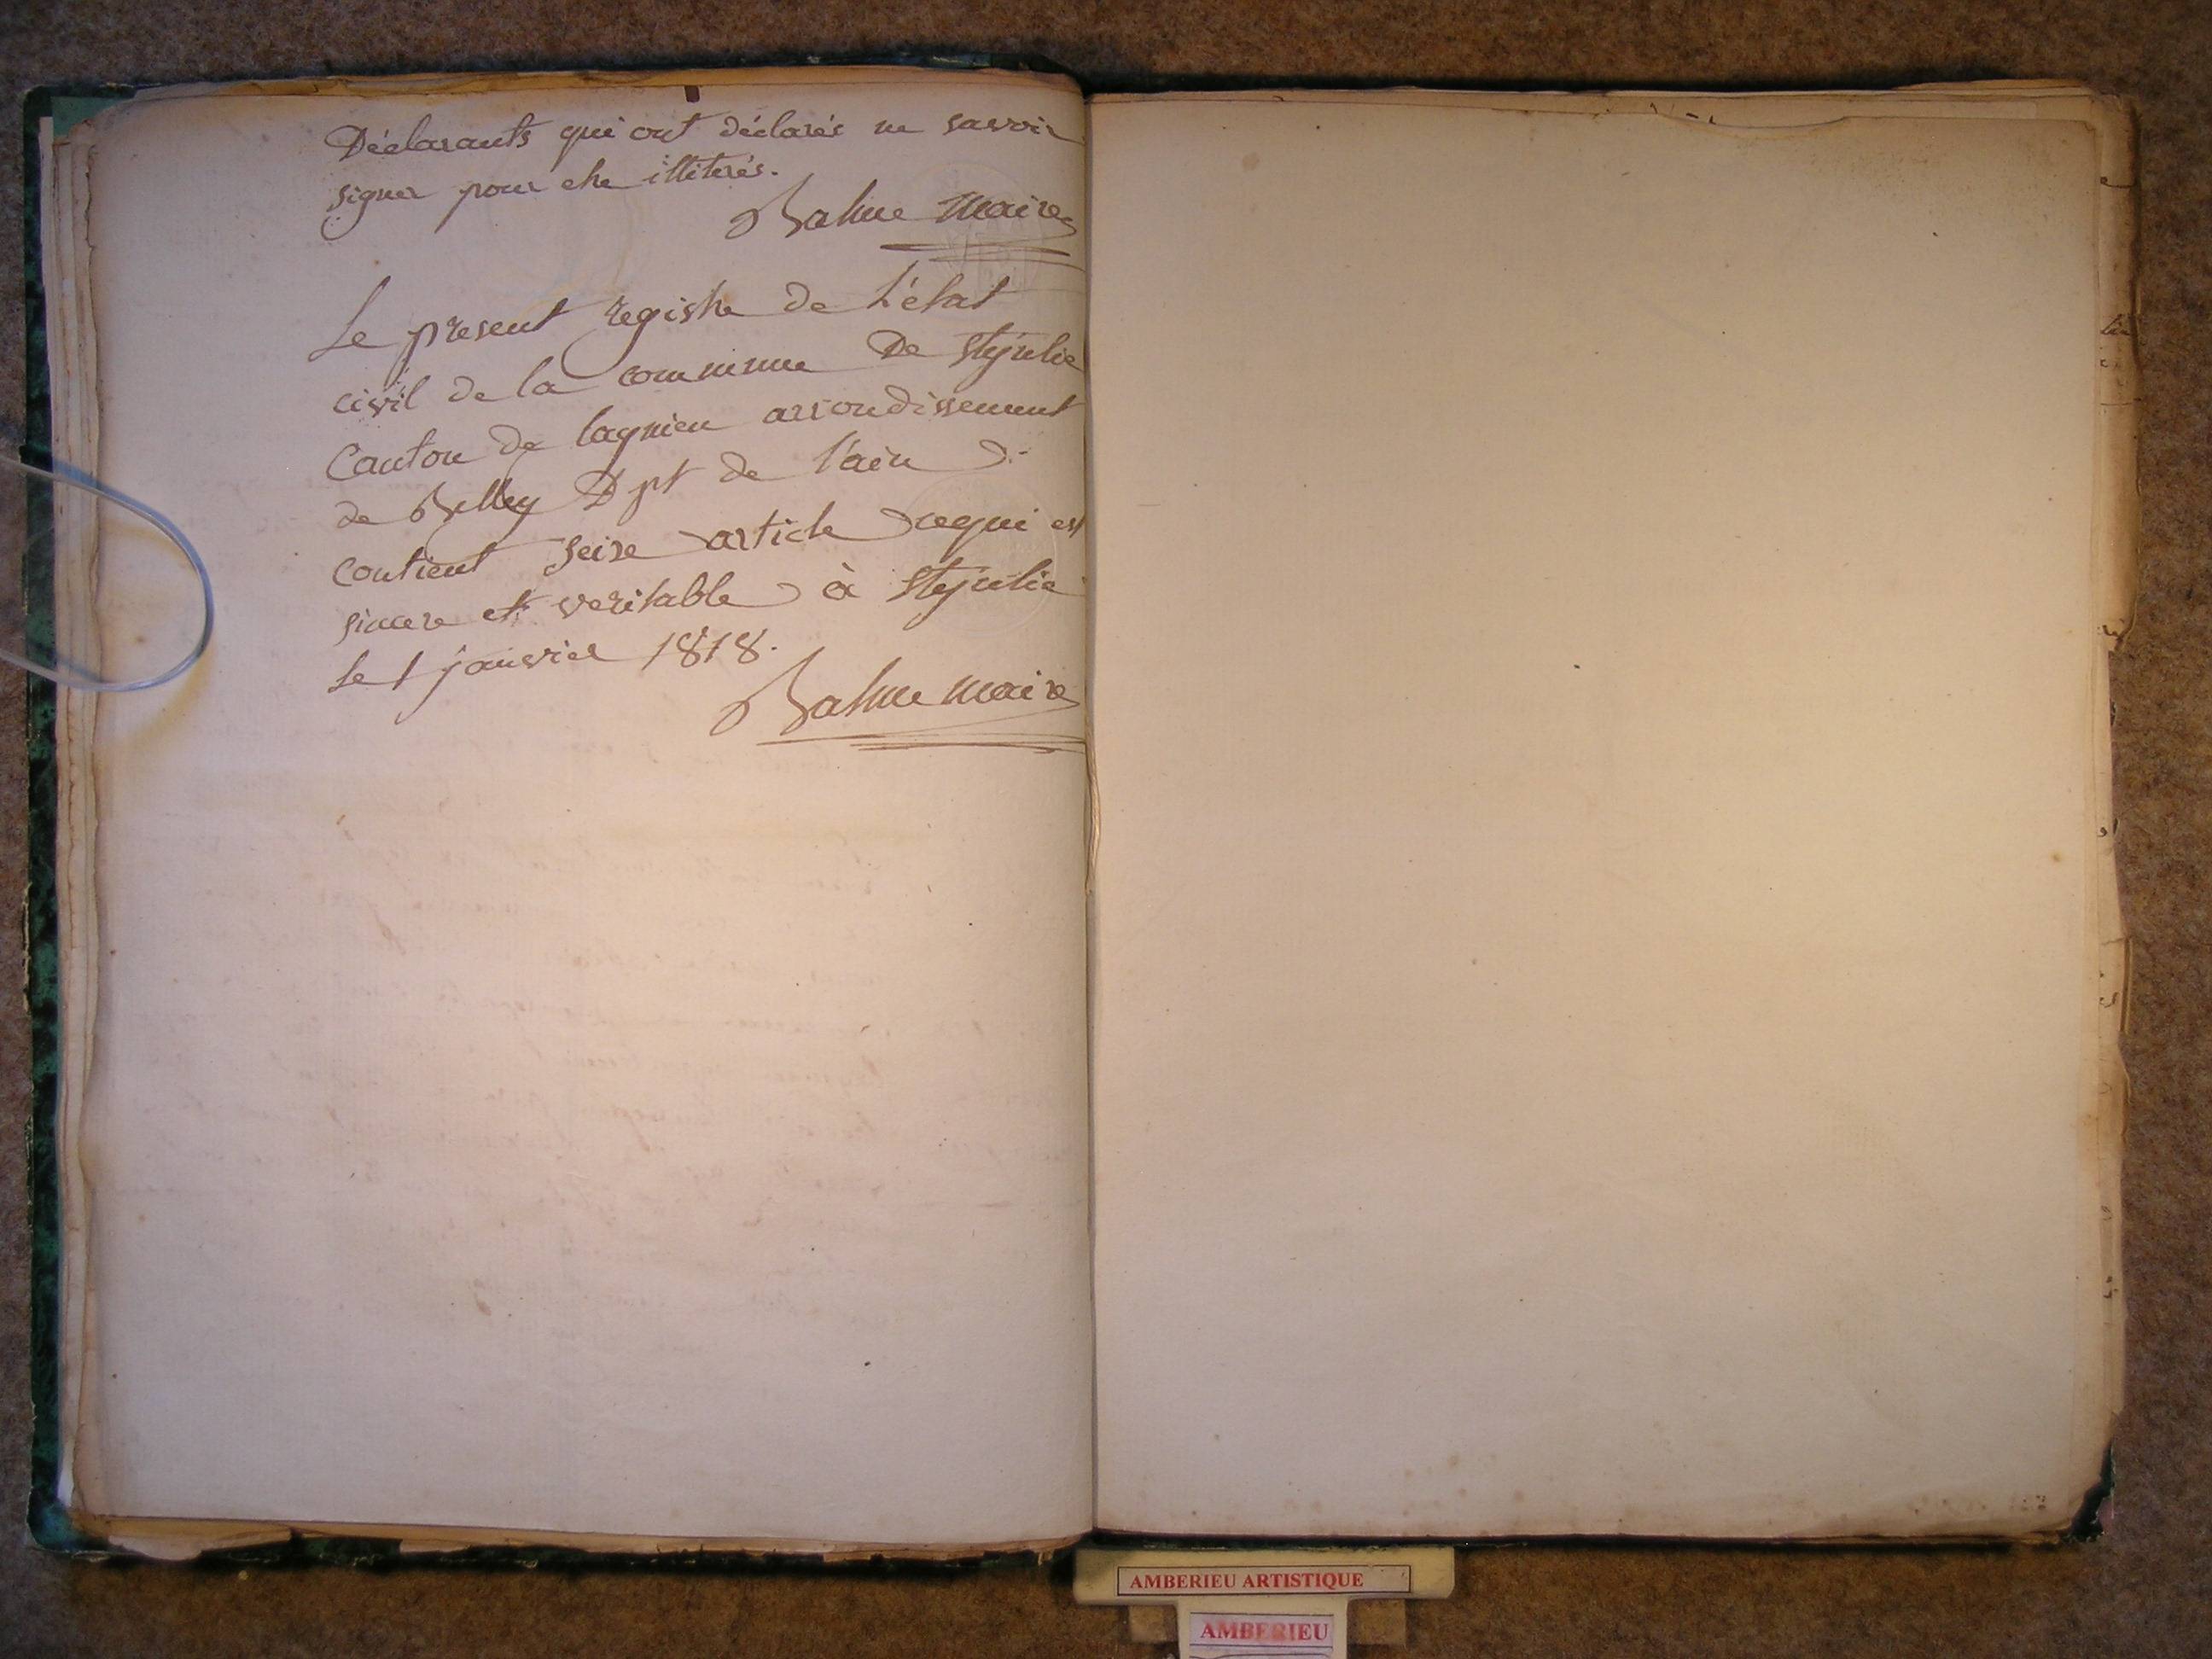 Déclarants qui ont déclarés ne savoir
signer pour etre illiterés.
maire
Le present registre de L'état
civil de la commune De Stejulie
Canton de lagnieu arrondissement
de Belley Dpt de l'ain
contient seize article cequi est
sincere et veritable à Stejulie
Le 1 janvier 1818.
maire
AMBERIEU ARTISTIQUE
AMBERIEU